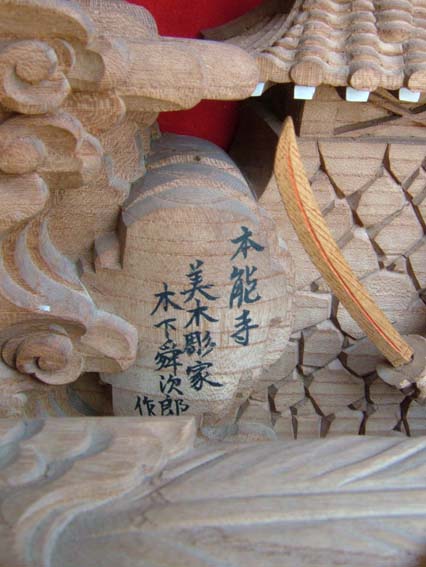 本能寺
美木彫家
木下舜次郎
作